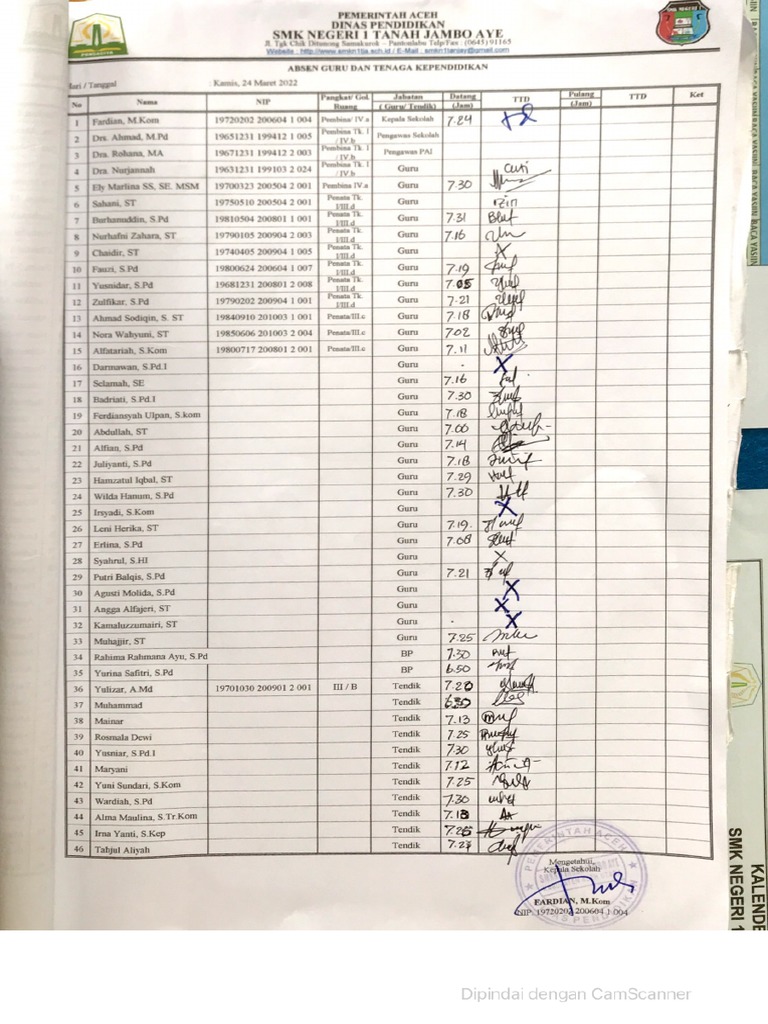 PEMERINTAH ACEH
DINAS PENDIDIKAN
SMK NEGERI 1 TANAH JAMBO AYE
Jl. Tgk Chik Ditunong Samakurok – Pantonlabu Telp/Fax : (0645) 91165
ABSEN GURU DAN TENAGA KEPENDIDIKAN
Hari / Tanggal : Kamis, 24 Maret 2022
No Nama NIP Pangkat/ Gol. Ruang Jabatan ( Guru/ Tendik) Datang (Jam) TTD Pulang (Jam) TTD Ket
1 Fardian, M.Kom 19720202 200604 1 004 Pembina/ IV.a Kepala Sekolah 7.24
2 Drs. Ahmad, M.Pd 19651231 199412 1 005 Pembina Tk. I / IV.b Pengawas Sekolah
3 Dra. Rohana, MA 19671231 199412 2 003 Pembina Tk. I / IV.b Pengawas PAI
4 Dra. Nurjannah 19631231 199103 2 024 Pembina Tk. I / IV.b Guru Cuti
5 Ely Marlina SS, SE. MSM 19700323 200504 2 001 Pembina IV.a Guru 7.30
6 Sahani, ST 19750510 200504 2 001 Penata Tk. I/III.d Guru izin
7 Burhanuddin, S.Pd 19810504 200801 1 001 Penata Tk. I/III.d Guru 7.31
8 Nurhafni Zahara, ST 19790105 200904 2 003 Penata Tk. I/III.d Guru 7.16
9 Chaidir, ST 19740405 200904 1 005 Penata Tk. I/III.d Guru X
10 Fauzi, S.Pd 19800624 200604 1 007 Penata Tk. I/III.d Guru 7.19
11 Yusnidar, S.Pd 19681231 200801 2 008 Penata Tk. I/III.d Guru 7.05
12 Zulfikar, S.Pd 19790202 200904 1 001 Penata Tk. I/III.d Guru 7.21
13 Ahmad Sodiqin, S. ST 19840910 201003 1 001 Penata/III.c Guru 7.18
14 Nora Wahyuni, ST 19850606 201003 2 004 Penata/III.c Guru 7.02
15 Alfatariah, S.Kom 19800717 200801 2 001 Penata/III.c Guru 7.11
16 Darmawan, S.Pd.I Guru - X
17 Selamah, SE Guru 7.16
18 Badriati, S.Pd.I Guru 7.30
19 Ferdiansyah Ulpan, S.kom Guru 7.18
20 Abdullah, ST Guru 7.00
21 Alfian, S.Pd Guru 7.14
22 Juliyanti, S.Pd Guru 7.18
23 Hamzatul Iqbal, ST Guru 7.29
24 Wilda Hanum, S.Pd Guru 7.30
25 Irsyadi, S.Kom Guru X
26 Leni Herika, ST Guru 7.19.
27 Erlina, S.Pd Guru 7.08
28 Syahrul, S.HI Guru X
29 Putri Balqis, S.Pd Guru 7.21
30 Agusti Molida, S.Pd Guru X
31 Angga Alfajeri, ST Guru X
32 Kamaluzzumairi, ST Guru - X
33 Muhajjir, ST Guru 7.25
34 Rahima Rahmana Ayu, S.Pd BP 7.30
35 Yurina Safitri, S.Pd BP 6.50
36 Yulizar, A.Md 19701030 200901 2 001 III / B Tendik 7.20
37 Muhammad Tendik 6.30
38 Mainar Tendik 7.13
39 Rosmala Dewi Tendik 7.25
40 Yusniar, S.Pd.I Tendik 7.30
41 Maryani Tendik 7.12
42 Yuni Sundari, S.Kom Tendik 7.25
43 Wardiah, S.Pd Tendik 7.30
44 Alma Maulina, S.Tr.Kom Tendik 7.18
45 Irna Yanti, S.Kep Tendik 7.25
46 Tahjul Aliyah Tendik 7.27
Mengetahui,
Kepala Sekolah
FARDIAN, M.Kom
NIP. 19720202 200604 1 004
PEMERINTAH ACEH
DINAS PENDIDIKAN
SMK NEGERI 1
Dipindai dengan CamScanner